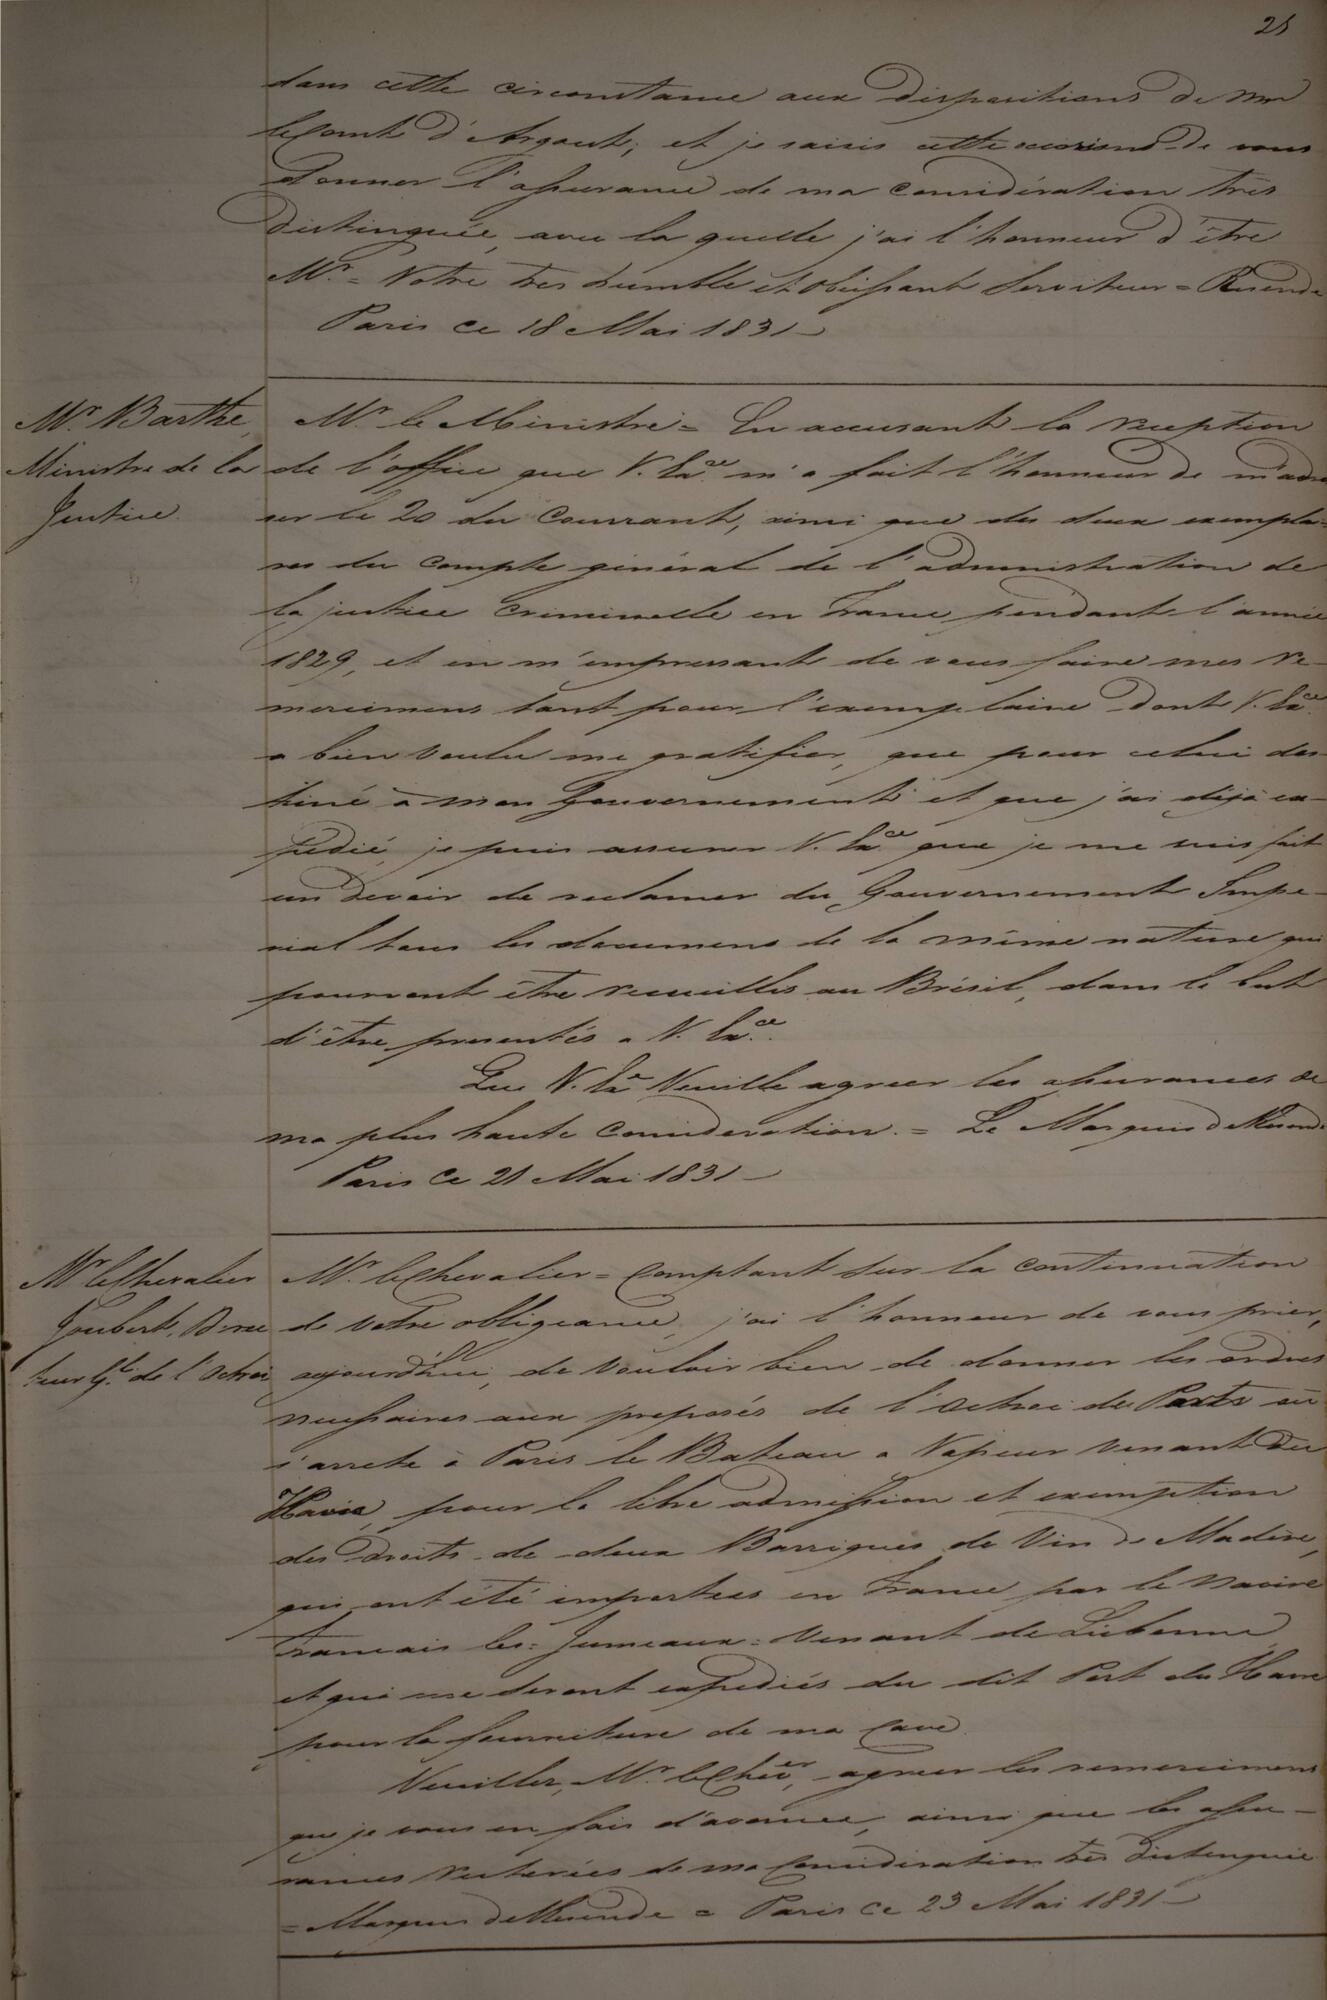 25
dans cette circonstance aux dispositions de Mr
le Comte d'Argout; et je saisis cette occasion de vous
donner l'assurance de ma considération très
distinguée, avec la quelle j'ai l'honneur d'être
Mr. = Votre très humble et obéissant Serviteur = Resende
Paris ce 18 Mai 1831 —
Mr. Barthe,
Ministre de la
Justice.
Mr. le Ministre = En accusant la reception
de l'office que V. Exce. m'a fait l'honneur de m'adres
ser le 20 du Courrant, ainsi que des deux exemplai-
res du compte général de l'administration de
la justice Criminelle en France pendant l'année
1829, et en m'empressant de vous faire mes re-
mercimens tant pour l'exemplaire dont V. Exce.
a bien voulu me gratifier, que pour celui des
tiné à mon Gouvernement et que j'ai déjà ex-
pedié, je puis assurer V. Exce. que je me suis fait
un devoir de reclamer du Gouvernement Impe-
rial tous les documens de la même nature qui
pourront être recueillis au Brésil, dans le but
d'être presentés a V. Exce.
Que V. Exe Veuille agreer les assurances de
ma plus haute consideration. = Le Marquis de Resende
Paris Ce 21 Mai 1831 —
Mr. le Chevalier
Joubert, Direc
teur Gl. de l'Octroi
Mr. le Chevalier = Comptant sur la continuation
de votre obligeance, j'ai l'honneur de vous prier,
aujourd'hui, de vouloir bien de donner les ordres
necessaires aux preposés de l'Octroi de Paris où
s'arrete à Paris le Bateau a Vapeur venant du
Havre, pour la libre admission et exemption
des droits de deux Barriques de Vin de Madère,
qui ont été importées en France par le navire
Francais les = Jumeaux = venant de Lisbonne
et qui me seront expediés du dit Port du Havre
pour la fourniture de ma Cave.
Veuillez, Mr. le Cher, agreer les remercimens
que je vous en fais d'avance, ainsi que les assu-
rances reiterées de ma Consideration très distinguée
= Marquis de Resende = Paris ce 23 Mai 1831 —